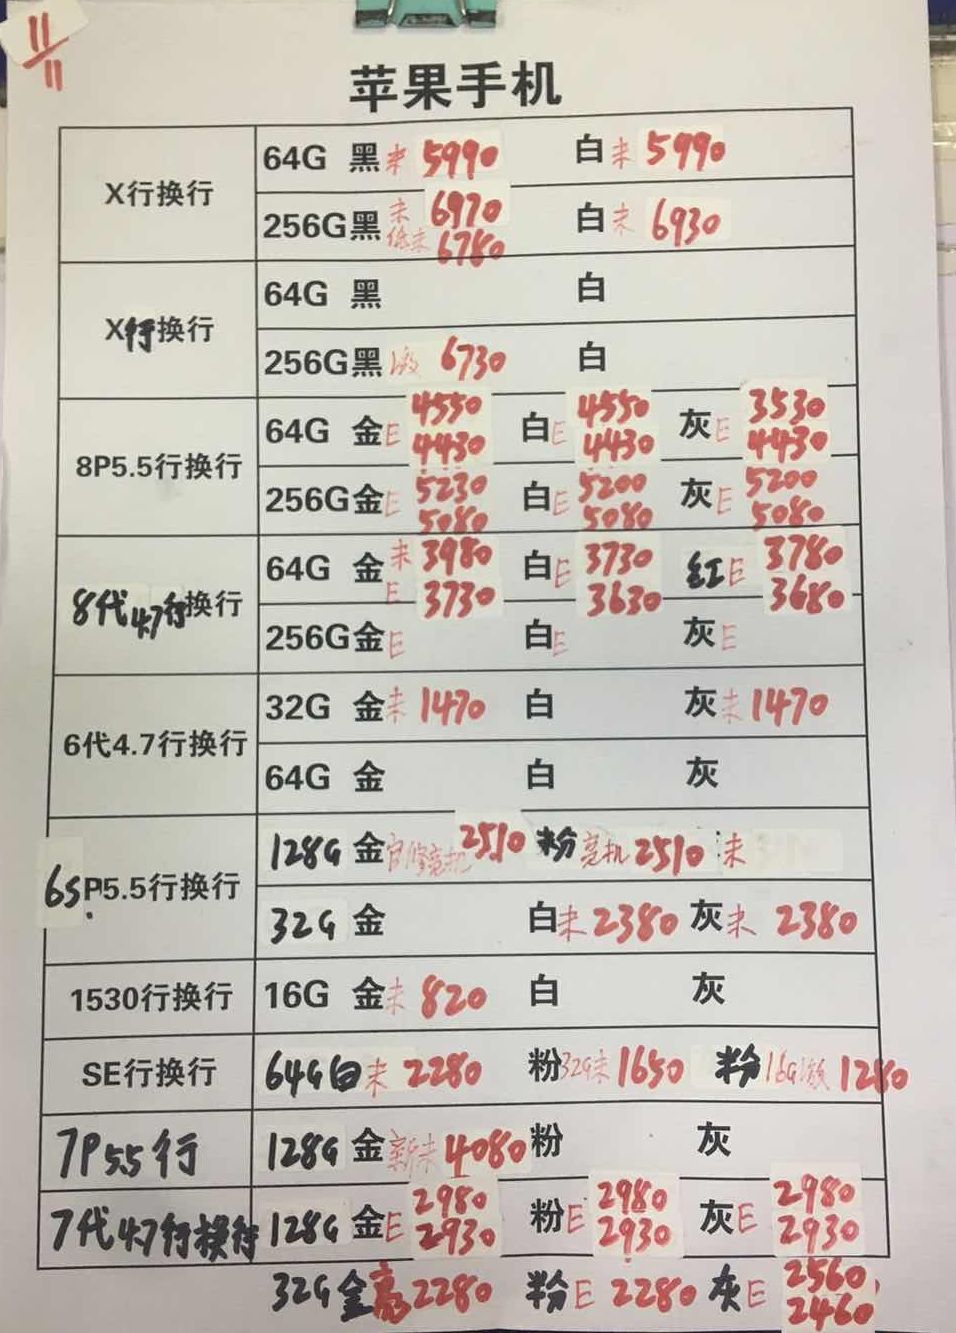 11/11
苹果手机
X行换行 64G 黑 未 5990 白 未 5990
256G 黑 未 6970 白 未 6930
未 6780
X行换行 64G 黑 白
256G 黑 激 6730 白
8P5.5行换行 64G 金 E 4550 4430 白 E 4550 4430 灰 E 3530 4430
256G 金 E 5230 5080 白 E 5200 5080 灰 E 5200 5080
8代4.7行换行 64G 金 未 3980 E 3730 白 E 3730 3630 红 E 3780 3680
256G 金 E 白 E 灰 E
6代4.7行换行 32G 金 未 1470 白 灰 未 1470
64G 金 白 灰
6SP5.5行换行 128G 金 官修亮机 2510 粉 亮机 2510 未
32G 金 白 未 2380 灰 未 2380
1530行换行 16G 金 未 820 白 灰
SE行换行 64G 白 未 2280 粉 32G未 1650 粉 16G激 1280
7P5.5行 128G 金 新未 4080 粉 灰
7代4.7行换行 128G 金 E 2980 2930 粉 E 2980 2930 灰 E 2980 2930
32G 金 亮 2280 粉 E 2280 灰 E 2560 2460